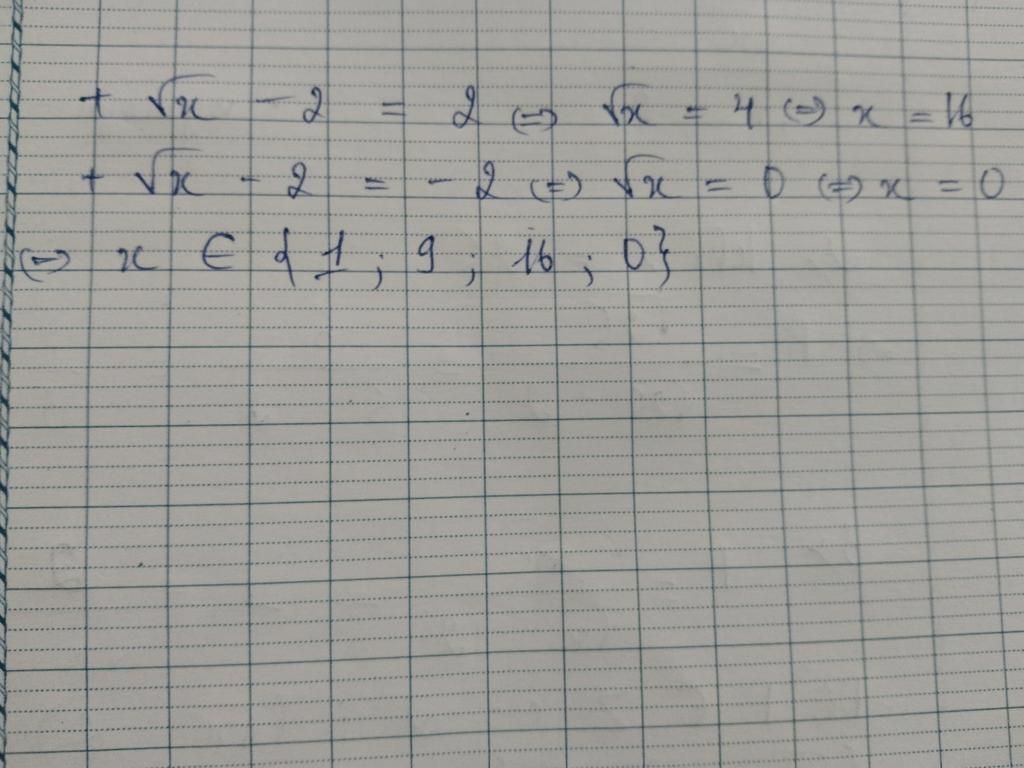 + √x - 2 = 2 ⇔ √x = 4 ⇔ x = 16
+ √x - 2 = - 2 ⇔ √x = 0 ⇔ x = 0
⇔ x ∈ {1 ; 9 ; 16 ; 0}